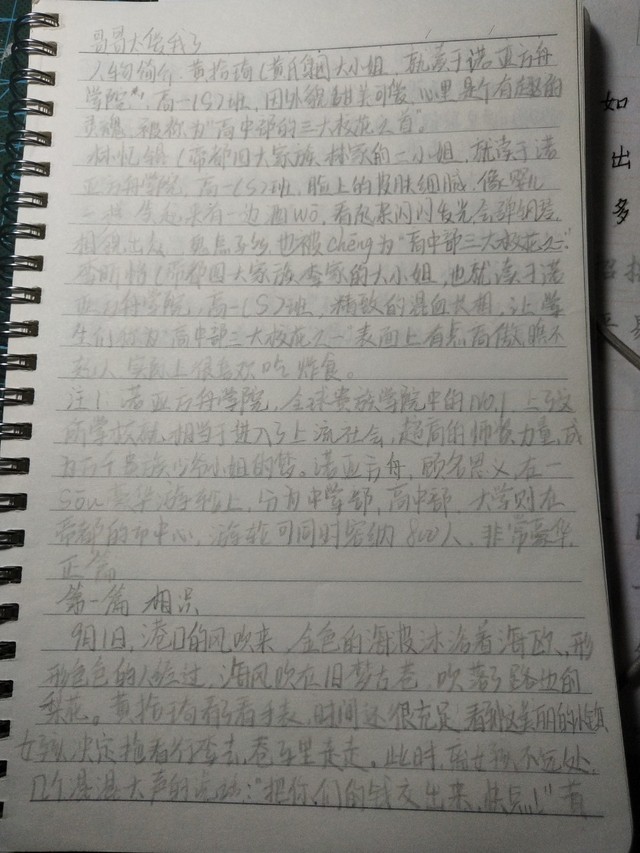 哥哥大佬我
人物简介 黄指琦(黄氏集团大小姐,就读于诺亚方舟
学院*¹,高一(S)班,因外貌甜美可爱,心里是个有趣的
灵魂,被称为"高中部的三大校花之首"。
林忆锦(帝都四大家族林家的二小姐,就读于诺
亚方舟学院,高一(S)班,脸上的皮肤细腻,像婴儿
一样,笑起来有一边酒wō,看起来闪闪发光
相貌出众 也被chēng为"高中部三大校花之一"
李(帝都四大家族李家的大小姐,也就读于诺
亚方舟学院,高一(S)班,精致的混血长相,让学
生们称为"高中部三大校花之一"表面上有点高傲瞧不
起人,实际上很喜欢吃炸食。
注1:诺亚方舟学院,全球贵族学院中的no.1
所学校就相当于进入了上流社会,超高的师资力量,成
为万千贵族少爷小姐的梦。诺亚方舟,顾名思义,在一
sōu豪华游轮上,分有中学部,高中部,大学则在
帝都的市中心,游轮可同时容纳800人,非常豪华
正篇
第一篇 相识
9月1日,港口的风吹来,金色的海报沐浴着海欧,形
形色色的人经过,海风吹在旧梦古巷,吹落了路边的
梨花。黄指琦看了看手表,时间还很充足,看到这美丽的
女孩决定拖着行李去巷子里走走。此时,离女孩不远处,
几个混混大声的:"把你们的钱交出来,快点!"黄
如
出
多